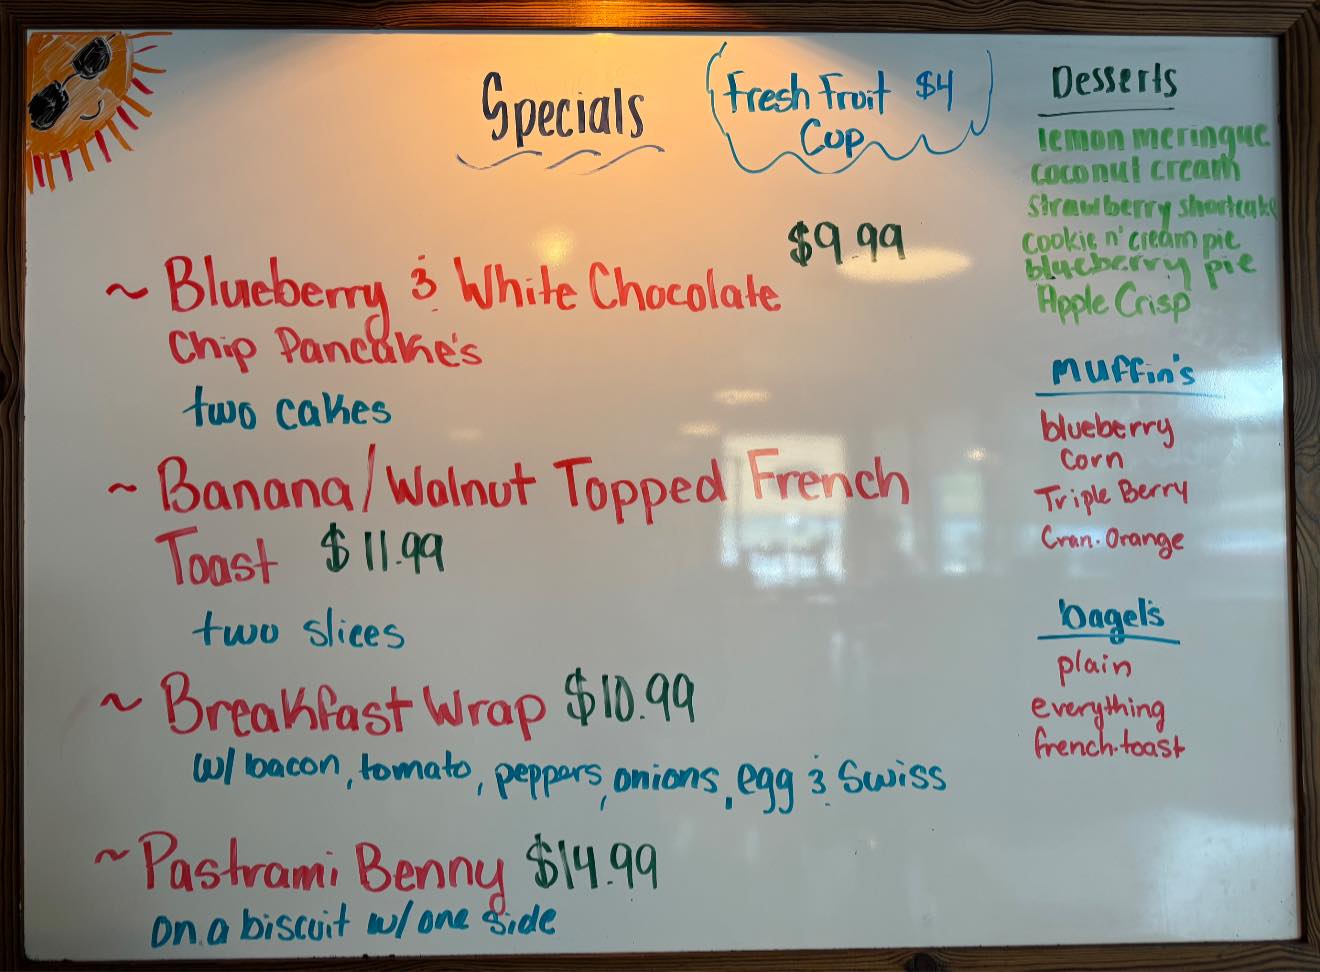 Specials
Fresh Fruit $4
Cup
$9.99
~ Blueberry & White Chocolate
Chip Pancake's
two cakes
~ Banana/Walnut Topped French
Toast $11.99
two slices
~ Breakfast Wrap $10.99
w/ bacon, tomato, peppers, onions, egg & Swiss
~ Pastrami Benny $14.99
on a biscuit w/ one side
Desserts
lemon meringue
coconut cream
strawberry shortcake
cookie n' cream pie
blueberry pie
Apple Crisp
Muffin's
blueberry
corn
Triple Berry
Cran-Orange
bagel's
plain
everything
french-toast